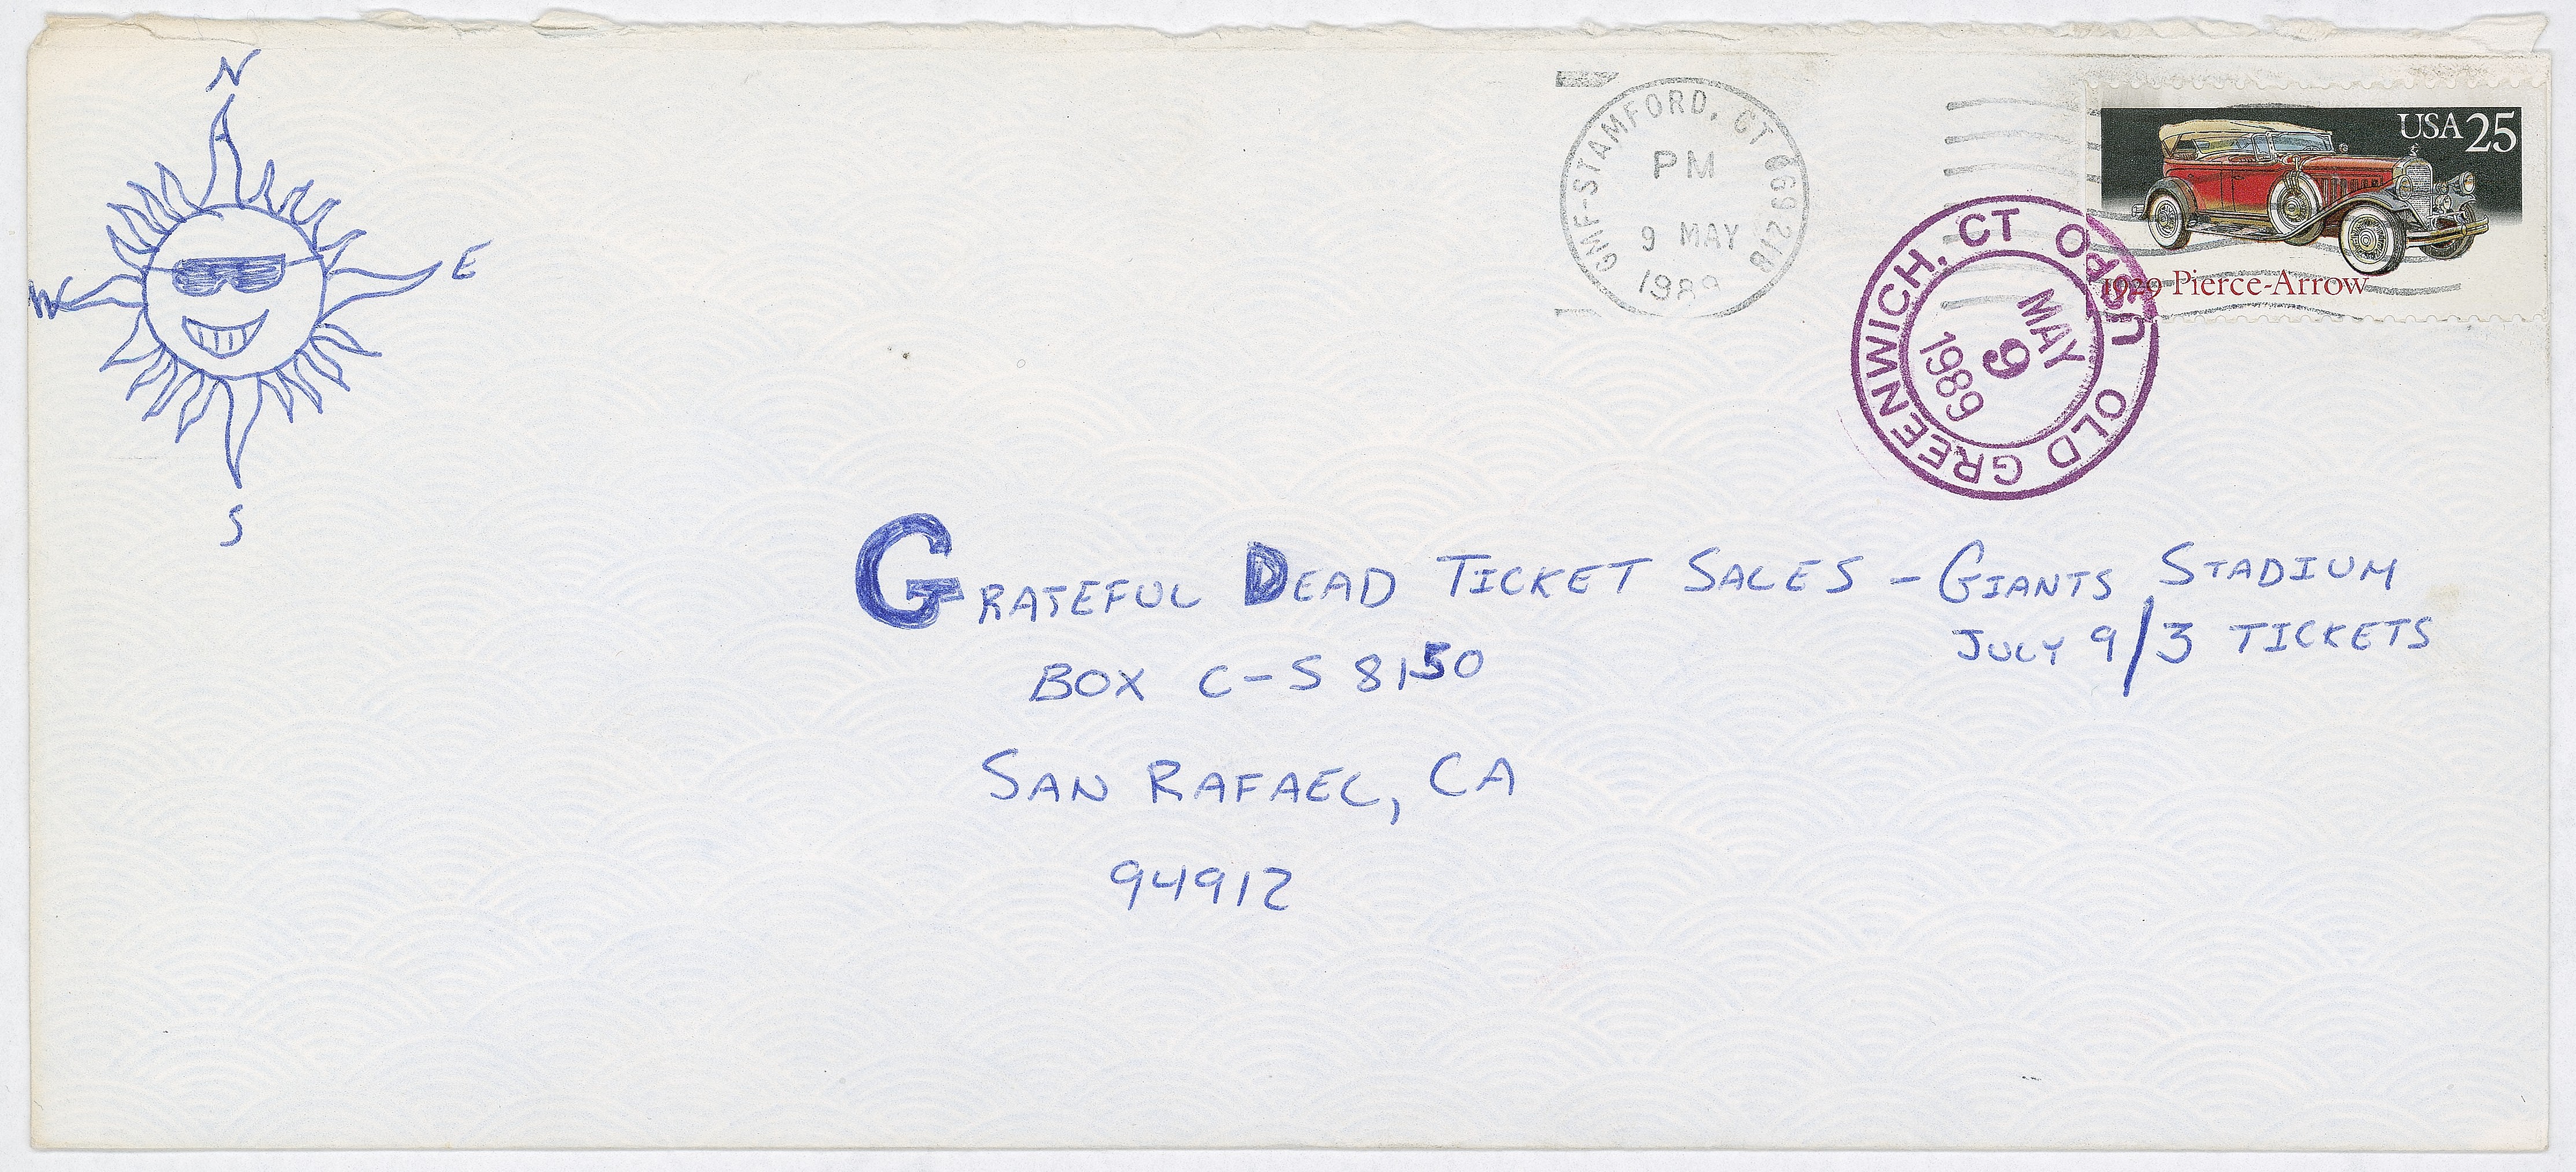 N
W
E
S
GMF-STAMFORD, CT 06921B
PM
9 MAY
1989
USA 25
1929 Pierce-Arrow
OLD GREENWICH, CT USPO
MAY
9
1989
GRATEFUL DEAD TICKET SALES - GIANTS STADIUM
JULY 9/3 TICKETS
BOX C-S 8150
SAN RAFAEL, CA
94912